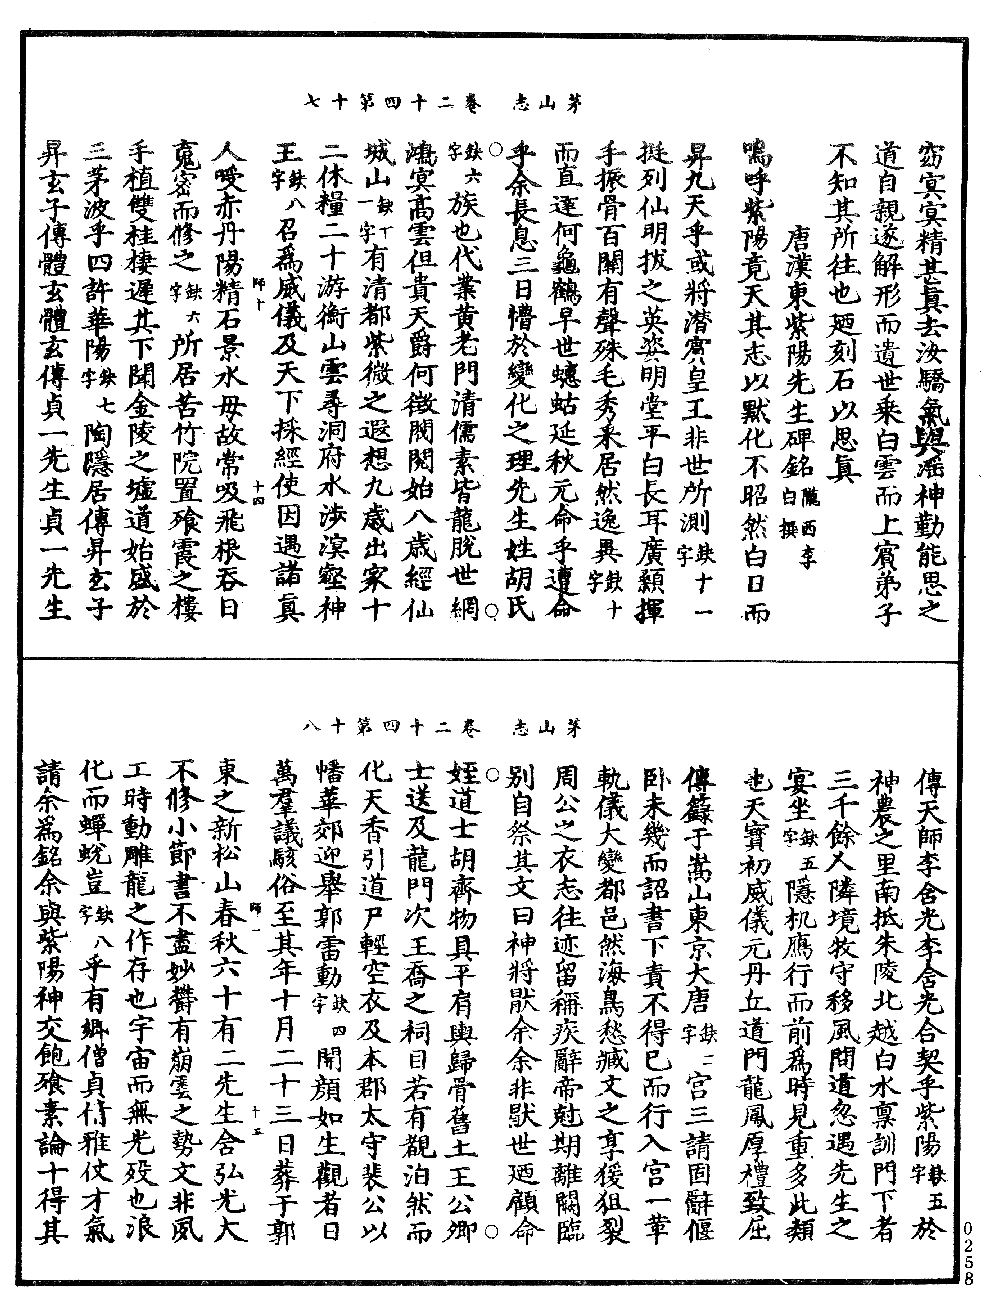 茅山志　卷二十四第十七
窈冥冥精甚眞去汝驕氣與滛神勤能思之
道自親遂解形而遺世乘白雲而上賓弟子
不知其所往也廼刻石以思眞
唐漢東紫陽先生碑銘隴西李白撰
嗚呼紫陽竟夭其志以默化不昭然白日而
昇九天乎或將潜賓皇王非世所測缺十一字
挺列仙明拔之英姿明堂平白長耳廣顙揮
手振骨百關有聲殊毛秀采居然逸異缺十字
而直逹何龜鶴早世蟪蛄延秋元命乎遭命
乎余長息三日懵於變化之理先生姓胡氏
缺六字族也代業黄老門清儒素皆龍脫世網
鴻冥高雲但貴天爵何徵閥閱始八歳經仙
城山缺十一字有清都紫微之遐想九歳出家十
二休糧二十游衡山雲尋洞府水渉溟壑神
王缺八字召爲威儀及天下採經使因遇諸眞
師十
十四
人受赤丹陽精石景水母故常吸飛根吞日
䰟密而修之缺六字所居苦竹院置飱霞之樓
手植雙桂棲遲其下聞金陵之墟道始盛於
三茅波乎四許華陽缺七字陶隱居傳昇玄子
昇玄子傳體玄體玄傳貞一先生貞一先生
茅山志　卷二十四第十八
傳天師李含光李含光合契乎紫陽缺五字於
神農之里南抵朱陵北越白水禀訓門下者
三千餘人隣境牧守移風問道忽遇先生之
宴坐缺五字隱机鴈行而前爲時見重多此類
也天寶初威儀元丹丘道門龍鳳厚禮致屈
傳籙于嵩山東京大唐缺二字宫三請固辭偃
卧未幾而詔書下責不得已而行入宫一革
軌儀大變都邑然海鳥愁臧文之享猨狙裂
周公之衣志往迹留稱疾辭帝尅期離闕臨
別自祭其文曰神將猒余余非猒世廼顧命
姪道士胡齊物具平肩輿歸骨舊土王公卿
士送及龍門次王喬之祠目若有覩泊然而
化天香引道尸輕空衣及本郡太守裴公以
幡華郊迎舉郭雷動缺四字開顏如生觀者日
萬羣議駭俗至其年十月二十三日葬于郭
師一
十五
東之新松山春秋六十有二先生含弘光大
不修小節書不盡妙欝有崩雲之勢文非夙
工時動雕龍之作存也宇宙而無光殁也浪
化而蟬蛻豈缺八字乎有鄉僧貞倩雅仗才氣
請余爲銘余與紫陽神交飽飱素論十得其
0258